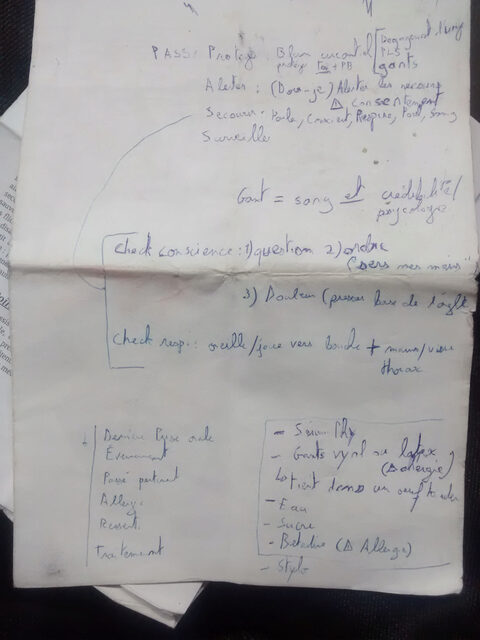 PASS: Protège: Bilan circonstanciel [Dégagement d'urg
protège toi + PB PLS
gants
Alerter: (Dois-je) Alerter les secours
Δ consentement
Secourir: Parle, Conscient, Respire, Pouls, Sang
Surveille
Gant = sang et crédibilité/
psycologie
Check conscience: 1) question 2) ordre
("serrs mes mains"
3) Douleur (presser base de l'ongle
Check respi: oreille/joue vers bouche + mains/vue
thorax
Dernière Prise orale
Évènement
Passé pertinent
Allergi.
Ressent.
Traitement
- Sérum Phy
- Gants vynl ou latex
(Δ allergie)
- Eau
- Sucre
- Bétadine (Δ Allergie)
- Stylo